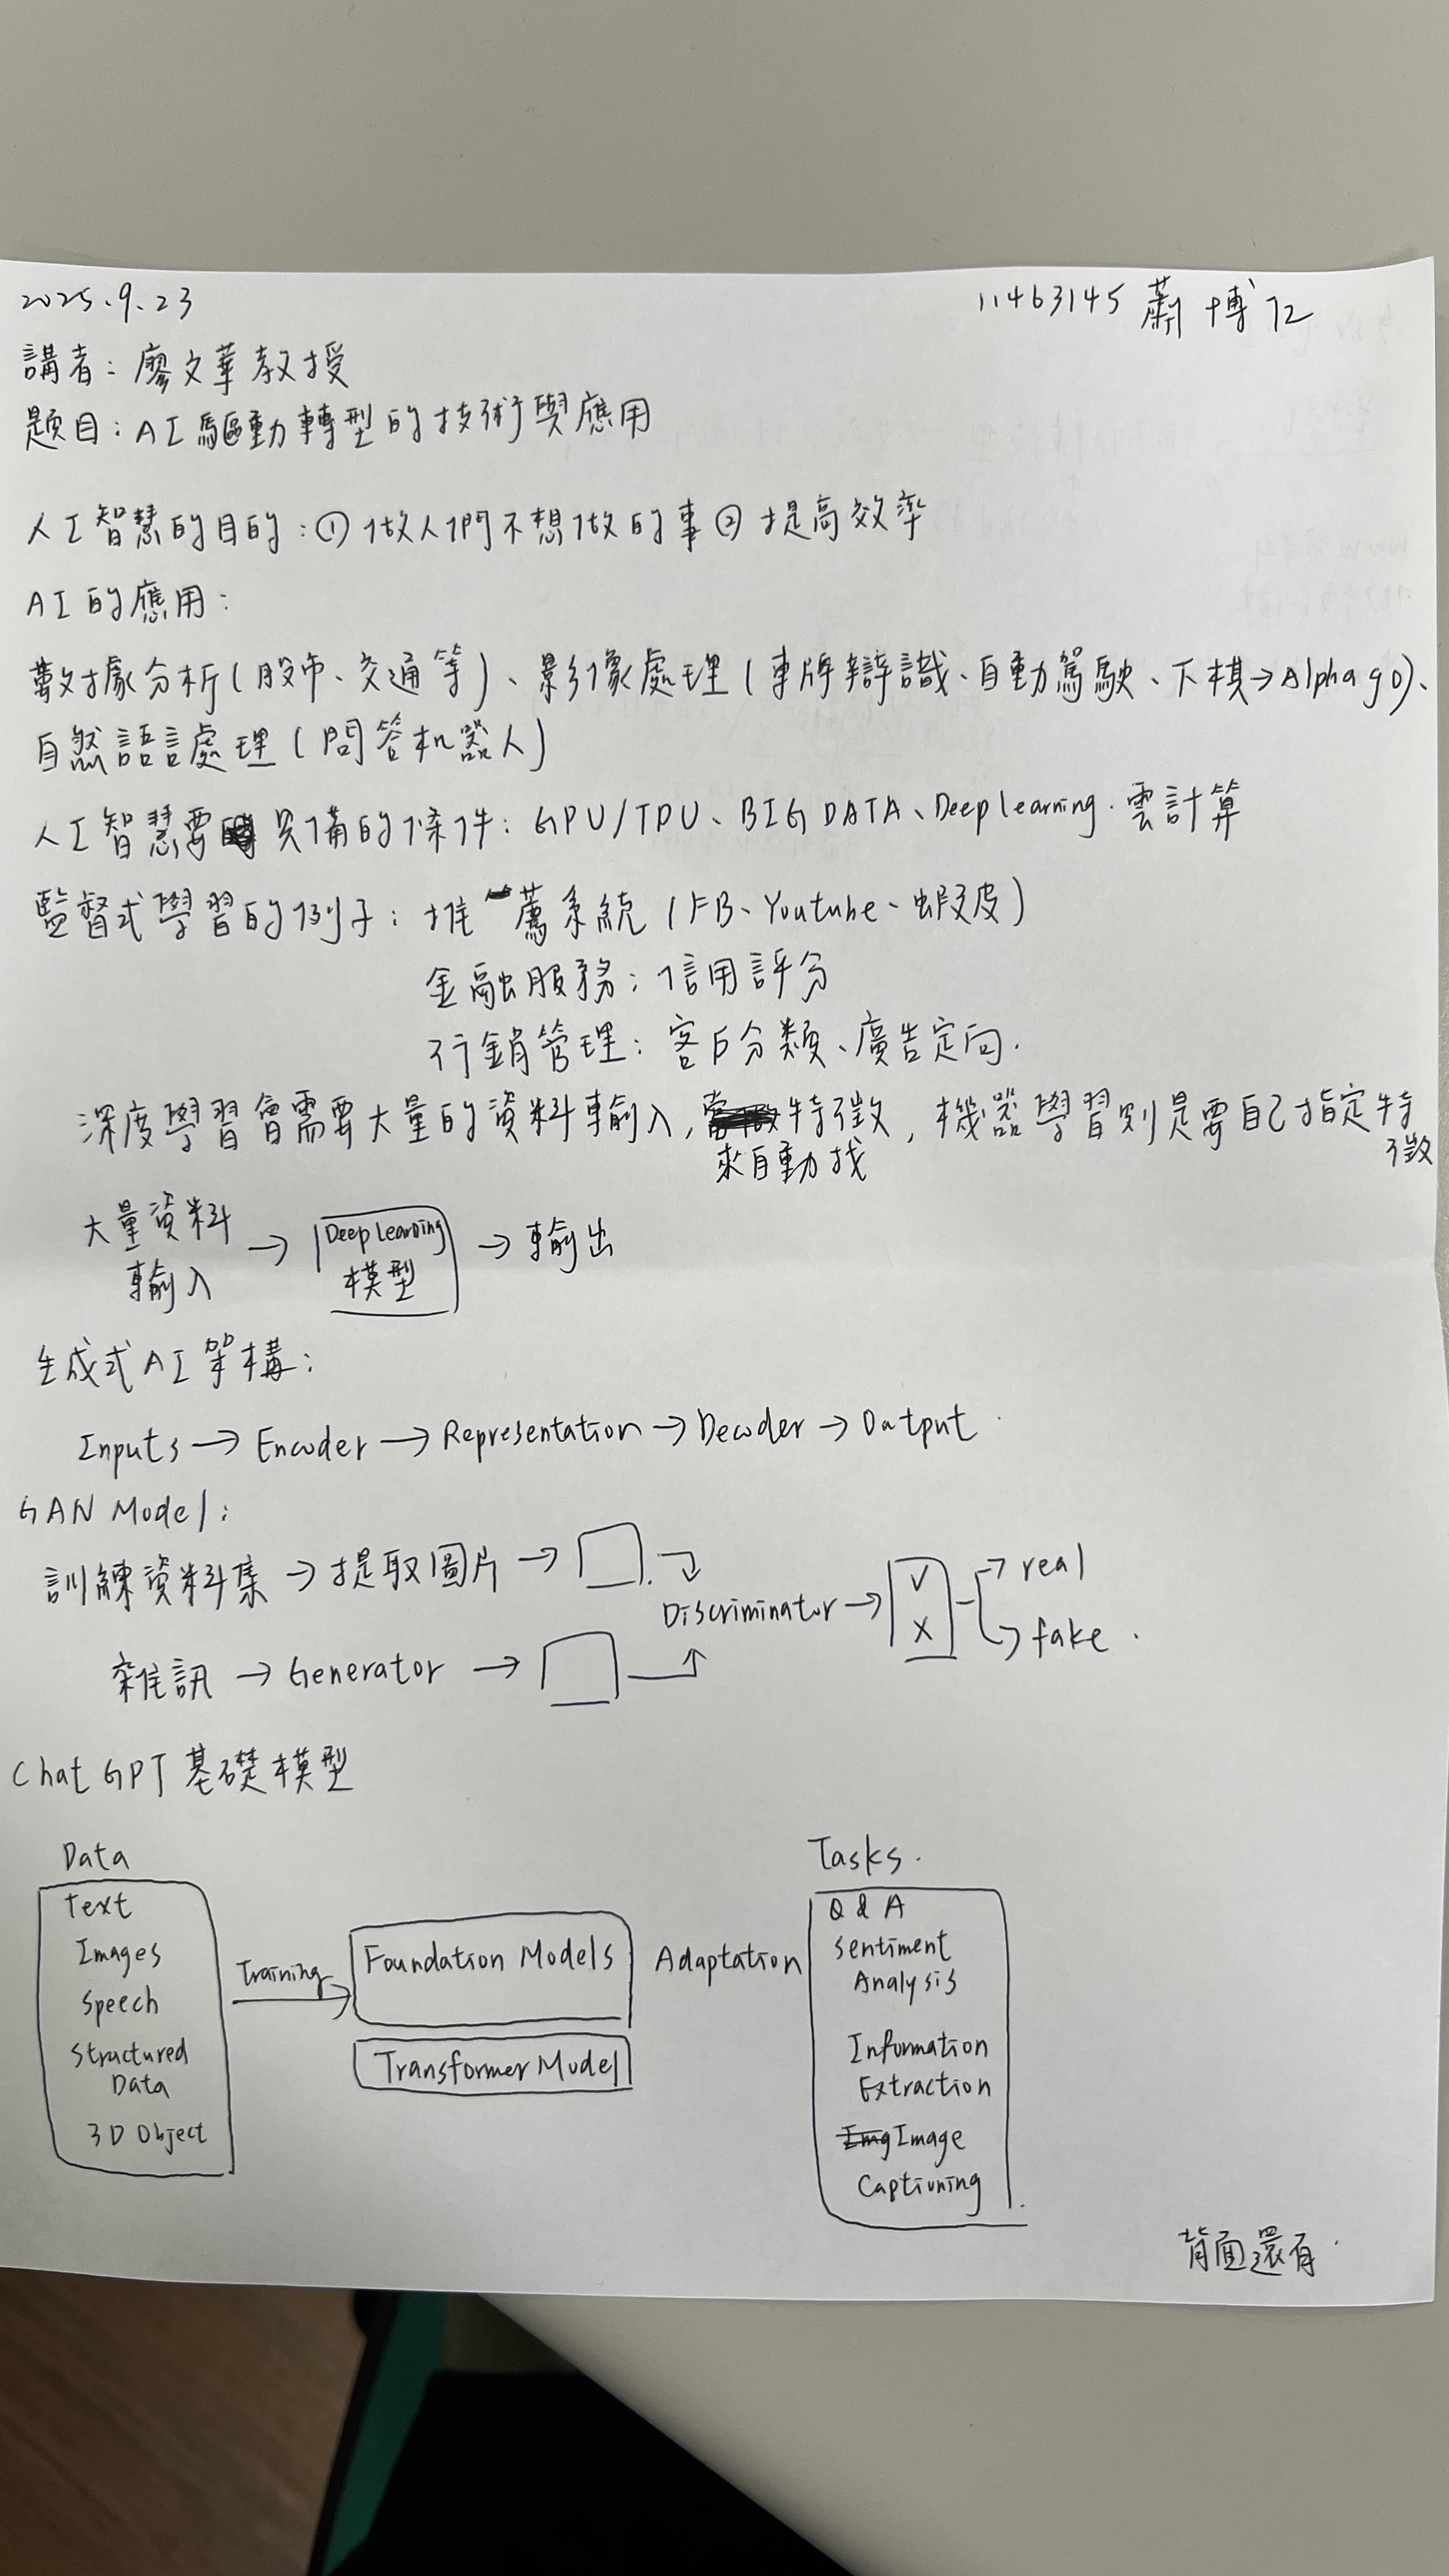 2025.9.23
11463145 蕭博仁
講者：廖文華教授
題目：AI驅動轉型的技術與應用
人工智慧的目的：① 做人們不想做的事 ② 提高效率
AI的應用：
數據分析(股市、交通等)、影像處理(車牌辯識、自動駕駛、下棋→Alpha go)、
自然語言處理(問答机器人)
人工智慧要具備的條件：GPU/TPU、BIG DATA、Deep learning．雲計算
監督式學習的例子：推薦系統(FB、Youtube、蝦皮)
金融服務：信用評分
行銷管理：客戶分類、廣告定向．
深度學習會需要大量的資料輸入，來自動找特徵，機器學習則是要自己指定特徵
大量資料
輸入
→
Deep Learning
模型
→ 輸出
生成式AI架構：
Inputs → Encoder → Representation → Decoder → Output
GAN Model：
訓練資料集 → 提取圖片 →
Discriminator →
✓
X
real
fake．
雜訊 → Generator →
Chat GPT 基礎模型
Data
Text
Images
Speech
Structured
Data
3D Object
Training
Foundation Models
Transformer Model
Adaptation
Tasks．
Q & A
Sentiment
Analysis
Information
Extraction
Img Image
Captioning
背面還有．